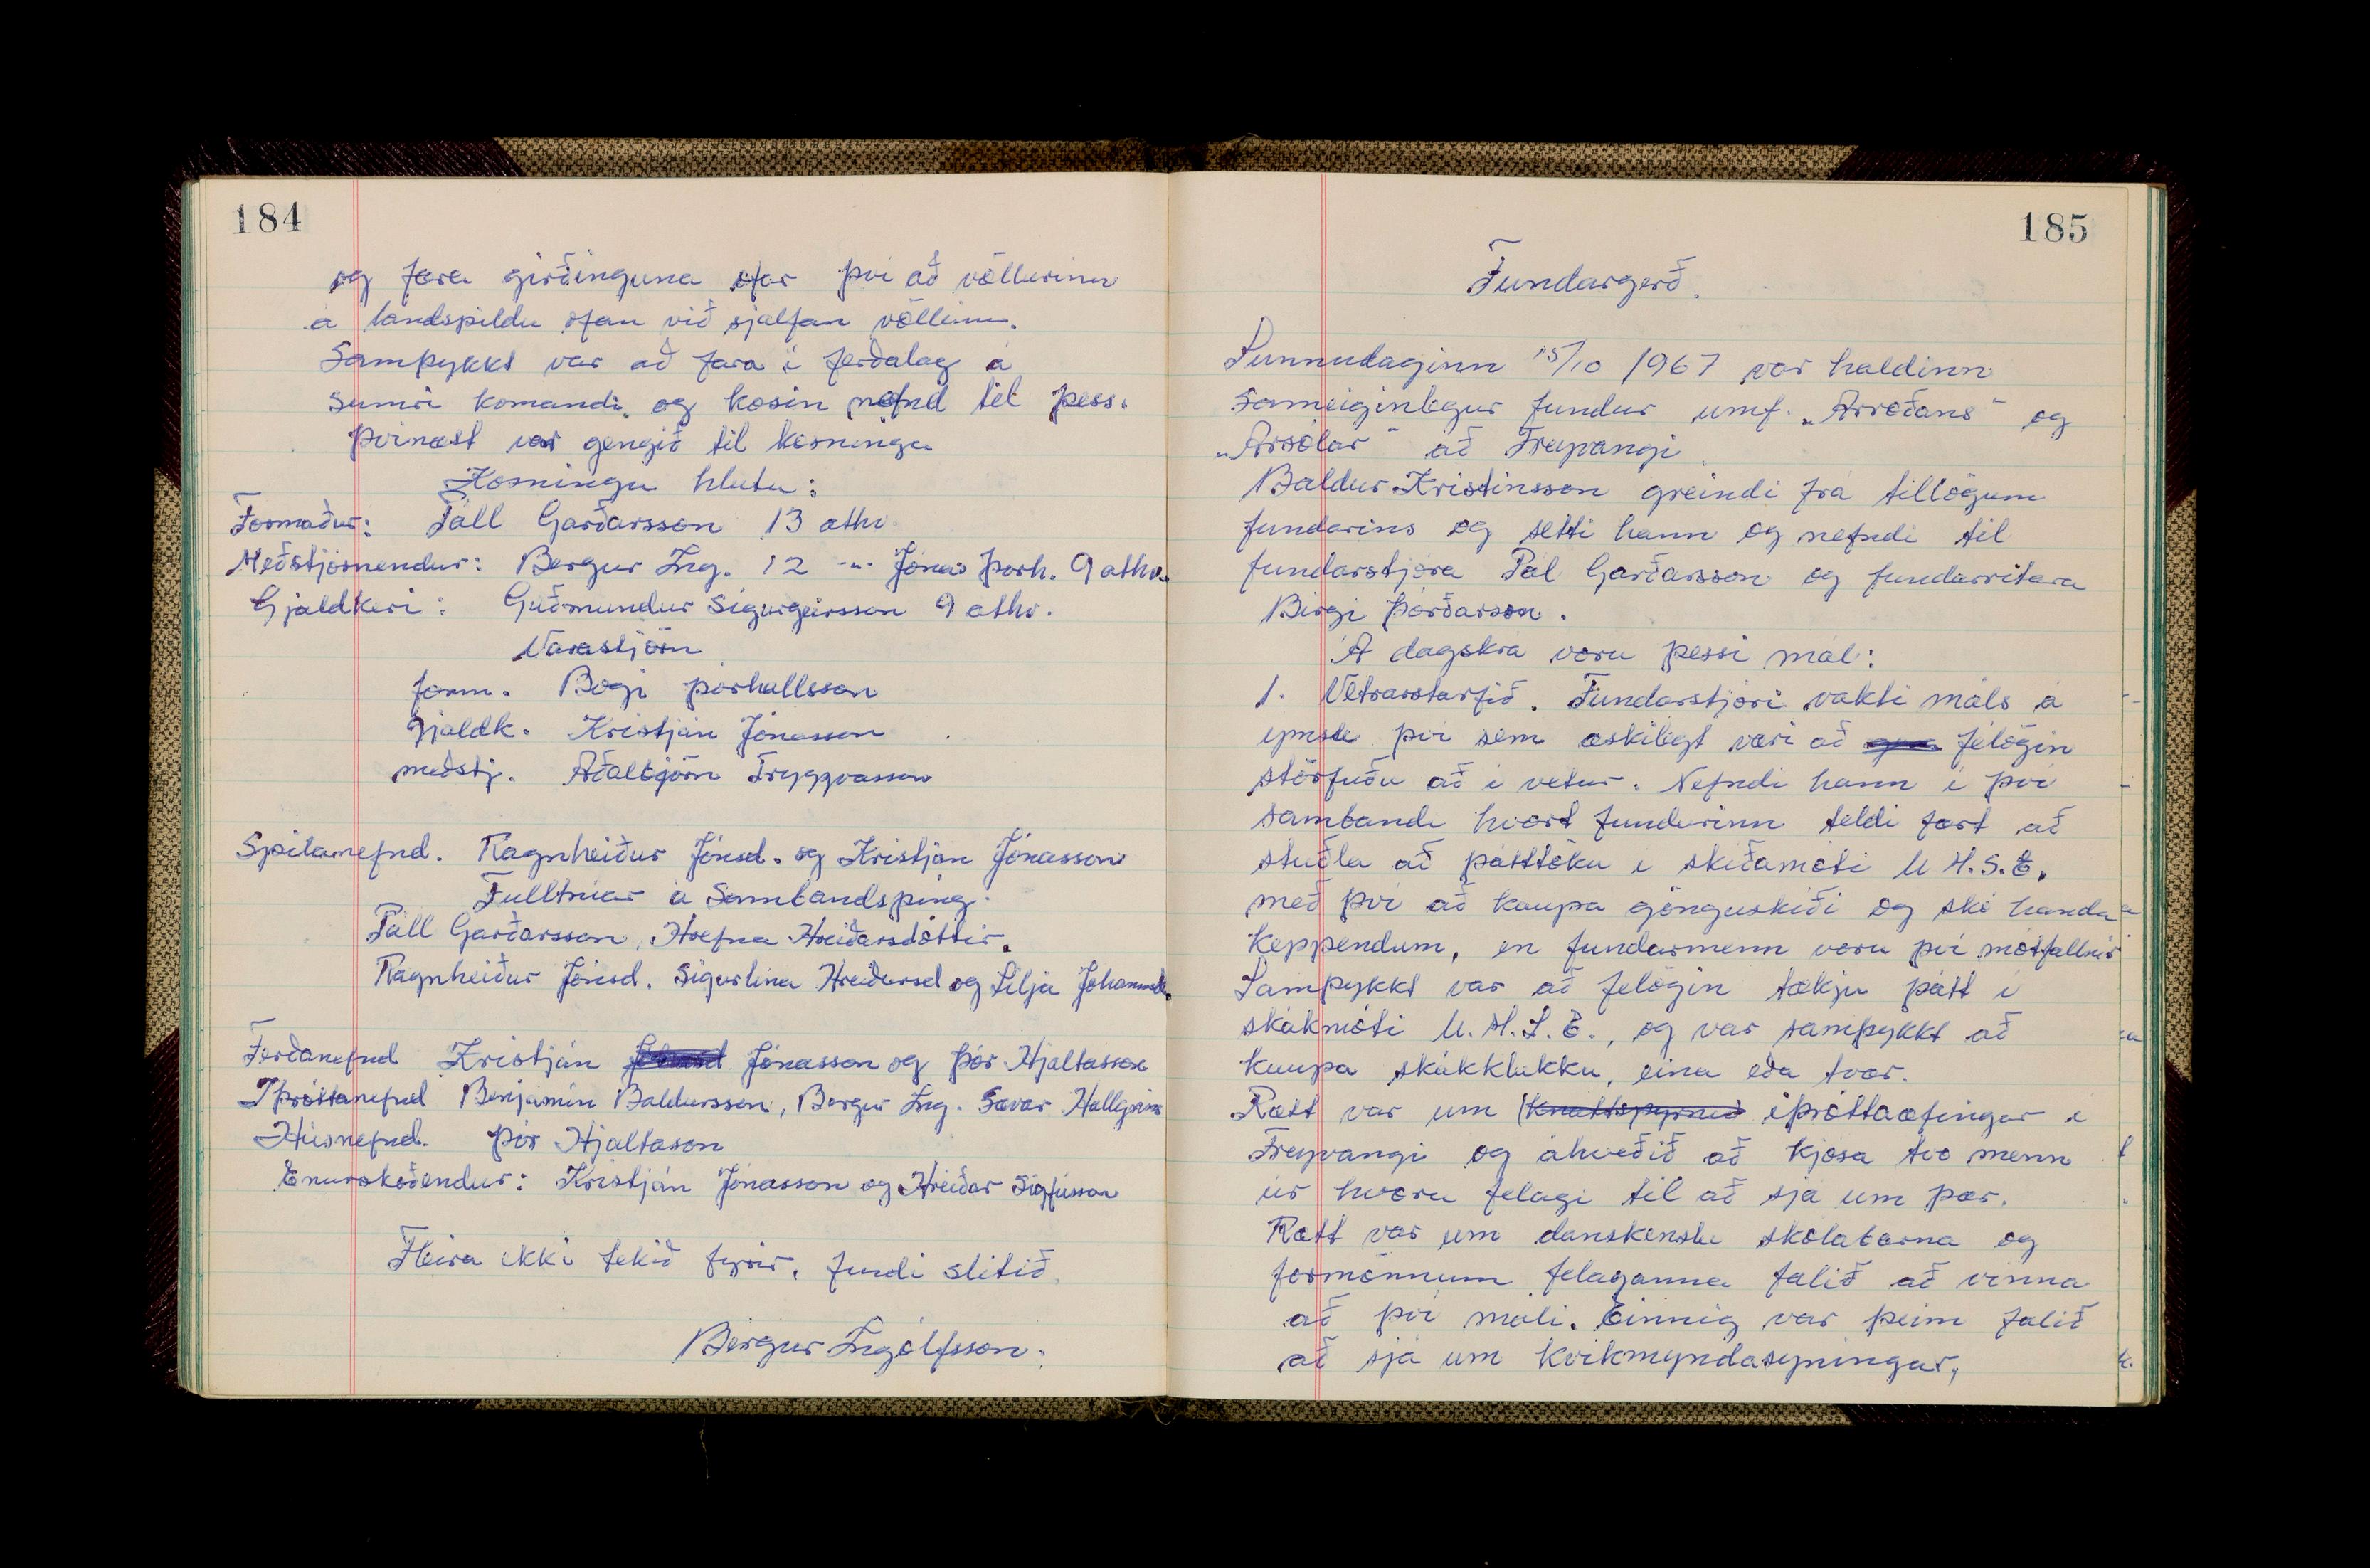 184
og færa girðinguna ofar því að völlurinn
á landspildu ofan við sjálfan völlinn.
Samþykkt var að fara í ferðalag á
sumri komandi, og kosin nefnd til þess.
Þvínæst var gengið til kosninga
Kosningu hlutu:
Formaður: Páll Garðarsson 13 atkv.
Meðstjórnendur: Bergur Ing. 12 -"- Jónas Þórh. 9 atkv.
Gjaldkeri: Guðmundur Sigurgeirsson 9 atkv.
Varastjórn
form. Bogi Þórhallsson
Gjaldk. Kristján Jónasson
meðstj. Aðalbjörn Tryggvasson
Spilanefnd. Ragnheiður Jónsd. og Kristján Jónasson
Fulltrúar á Sambandsþing.
Páll Garðarsson, Hrefna Hreiðarsdóttir.
Ragnheiður Jónsd. Sigurlína Hreiðarsd og Lilja Jóhannsd.
Ferðanefnd Kristján Jónasson og Þór Hjaltasson
Íþróttanefnd Benjamín Baldursson, Bergur Ing. Sævar Hallgríms
Húsnefnd. Þór Hjaltason
Endurskoðendur: Kristján Jónasson og Hreiðar Sigfússon
Fleira ekki tekið fyrir, fundi slitið.
Bergur Ingólfsson.
185
Fundargerð.
Sunnudaginn 15/10 1967 var haldinn
Sameiginlegur fundur umf. „Árroðans" og
„Ársólar" að Freyvangi
Baldur Kristinsson greindi frá tillögum
fundarins og setti hann og nefndi til
fundarstjóra Pál Garðarsson og fundarritara
Birgi Þórðarson.
Á dagskrá voru þessi mál:
1. Vetrarstarfið. Fundarstjóri vakti máls á
ýmsu því sem æskilegt væri að félögin
störfuðu að í vetur. Nefndi hann í því
sambandi hvort fundurinn teldi fært að
stuðla að þátttöku í skíðamóti U.M.S.E.
með því að kaupa gönguskíði og skó handa
keppendum, en fundarmenn voru því mótfallnir
Samþykkt var að félögin tækju þátt í
skákmóti U.M.S.E., og var samþykkt að
kaupa skákklukku, eina eða tvær.
Rætt var um Knattspyrnuæ íþróttaæfingar í
Freyvangi og ákveðið að kjósa tvo menn
úr hvoru félagi til að sjá um þær.
Rætt var um danskenslu skólabarna og
formönnum félaganna falið að vinna
að því máli. Einnig var þeim falið
að sjá um kvikmyndasýningar,